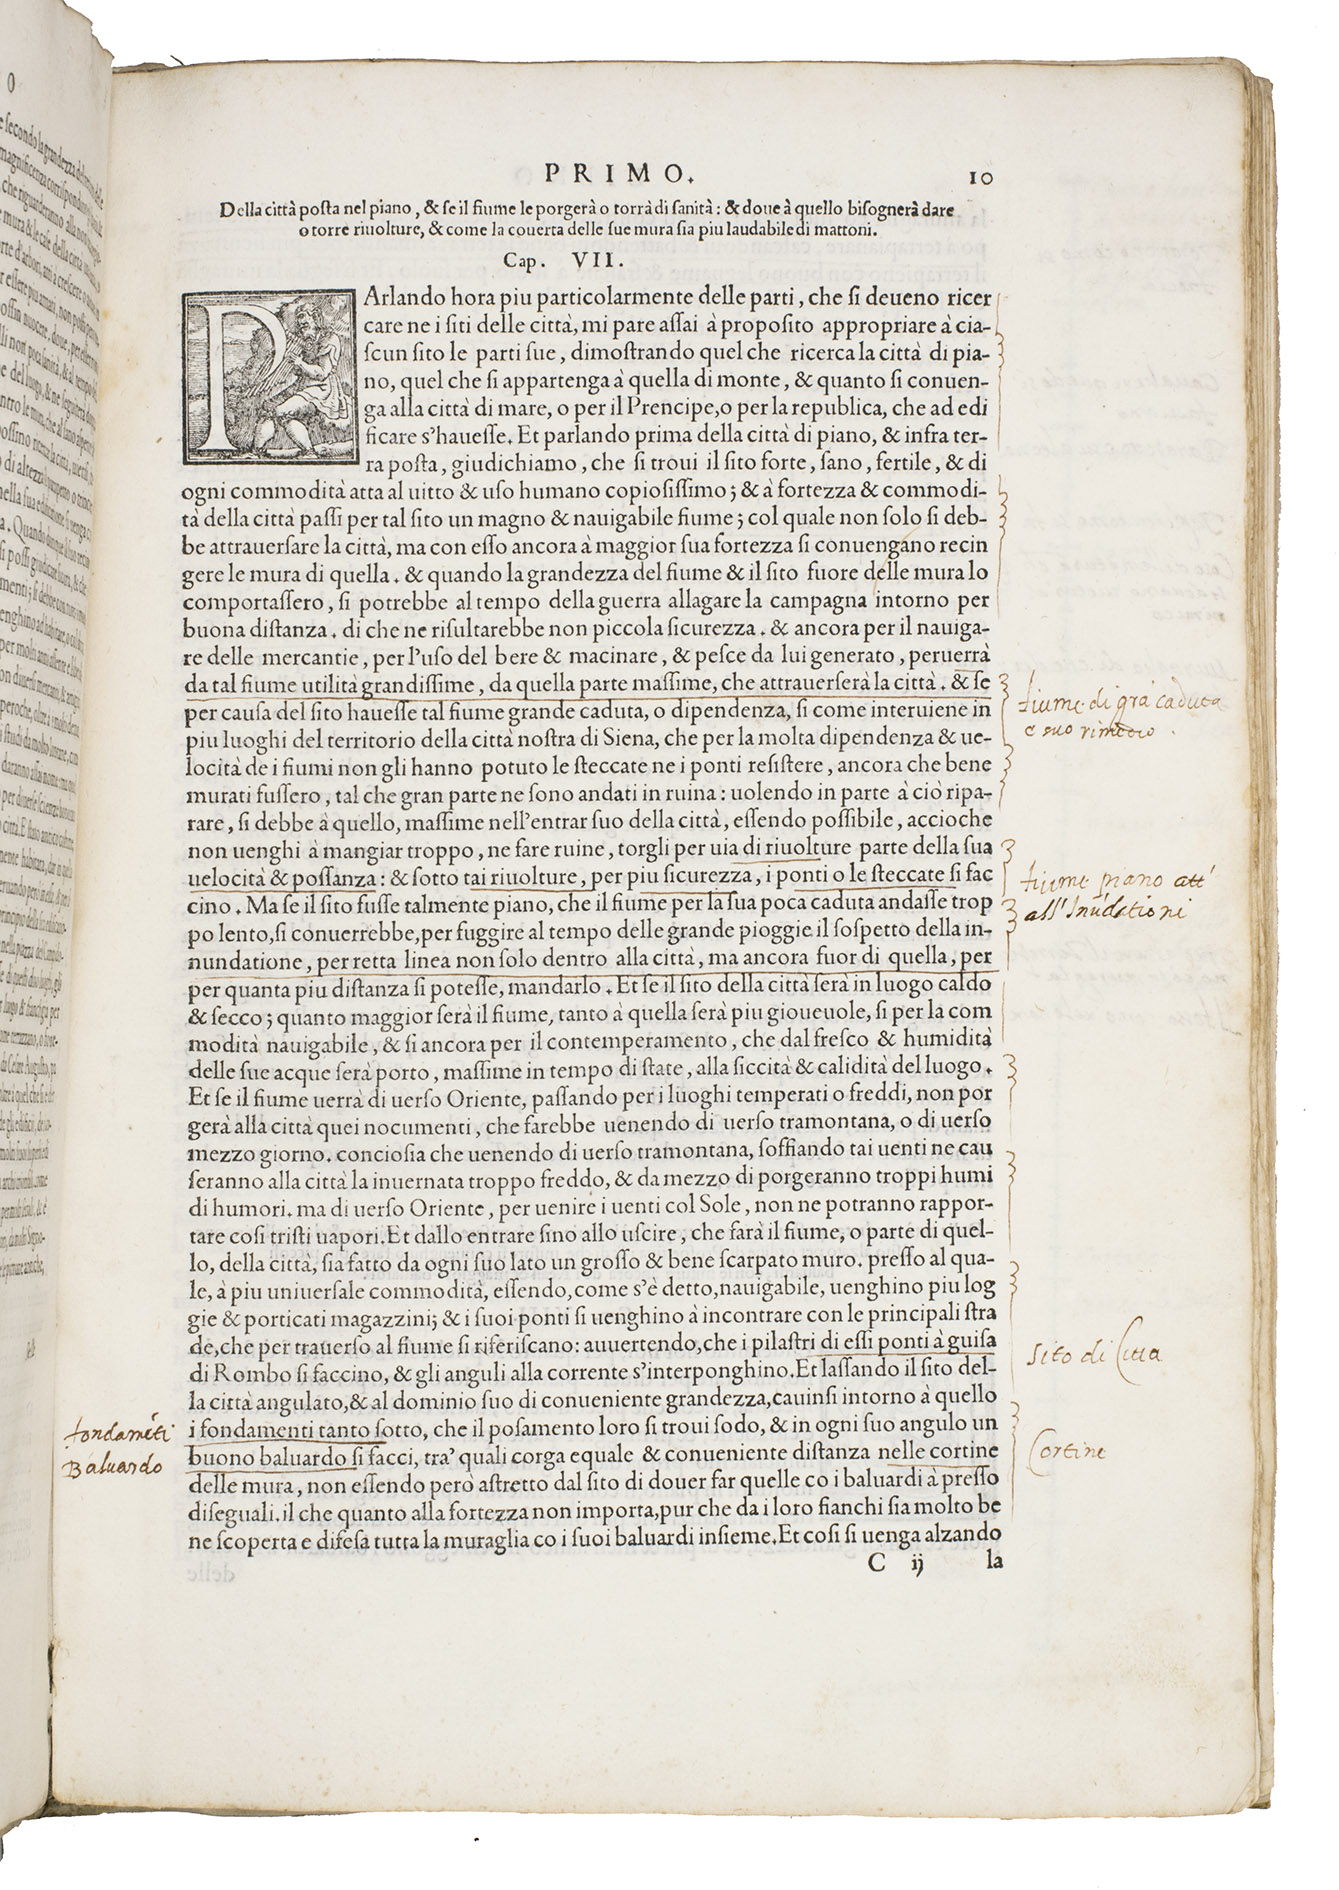 PRIMO. 10
Della città posta nel piano, & se il fiume le porgerà o torrà di sanità: & doue à quello bisognerà dare
o torre riuolture, & come la couerta delle sue mura sia piu laudabile di mattoni.
Cap. VII.
PArlando hora piu particolarmente delle parti, che si deueno ricer
care ne i siti delle città, mi pare assai à proposito appropriare à cia-
scun sito le parti sue, dimostrando quel che ricerca la città di pia-
no, quel che si appartenga à quella di monte, & quanto si conuen-
ga alla città di mare, o per il Prencipe, o per la republica, che ad edi
ficare s'hauesse. Et parlando prima della città di piano, & infra ter-
ra posta, giudichiamo, che si troui il sito forte, sano, fertile, & di
ogni commodità atta al uitto & uso humano copiosissimo; & à fortezza & commodi-
tà della città passi per tal sito un magno & nauigabile fiume; col quale non solo si deb-
be attrauersare la città, ma con esso ancora à maggior sua fortezza si conuengano recin
gere le mura di quella. & quando la grandezza del fiume & il sito fuore delle mura lo
comportassero, si potrebbe al tempo della guerra allagare la campagna intorno per
buona distanza. di che ne risultarebbe non piccola sicurezza. & ancora per il nauiga-
re delle mercantie, per l'uso del bere & macinare, & pesce da lui generato, peruerrà
da tal fiume utilità grandissime, da quella parte massime, che attrauerserà la città. & se
per causa del sito hauesse tal fiume grande caduta, o dipendenza, si come interuiene in
piu luoghi del territorio della città nostra di Siena, che per la molta dipendenza & ue-
locità de i fiumi non gli hanno potuto le steccate ne i ponti resistere, ancora che bene
murati fussero, tal che gran parte ne sono andati in ruina: uolendo in parte à ciò ripa-
rare, si debbe à quello, massime nell'entrar suo della città, essendo possibile, accioche
non uenghi à mangiar troppo, ne fare ruine, torgli per uia di riuolture parte della sua
uelocità & possanza: & sotto tai riuolture, per piu sicurezza, i ponti o le steccate si fac
cino. Ma se il sito fusse talmente piano, che il fiume per la sua poca caduta andasse trop
po lento, si conuerrebbe, per fuggire al tempo delle grande pioggie il sospetto della in-
nundatione, per retta linea non solo dentro alla città, ma ancora fuor di quella, per
per quanta piu distanza si potesse, mandarlo. Et se il sito della città serà in luogo caldo
& secco; quanto maggior serà il fiume, tanto à quella serà piu gioueuole, si per la com
modità nauigabile, & si ancora per il contemperamento, che dal fresco & humidità
delle sue acque serà porto, massime in tempo di state, alla siccità & calidità del luogo.
Et se il fiume uerrà di uerso Oriente, passando per i luoghi temperati o freddi, non por
gerà alla città quei nocumenti, che farebbe uenendo di uerso tramontana, o di uerso
mezzo giorno. conciosia che uenendo di uerso tramontana, soffiando tai uenti ne cau
seranno alla città la inuernata troppo freddo, & da mezzo di porgeranno troppi humi
di humori. ma di uerso Oriente, per uenire i uenti col Sole, non ne potranno rappor-
tare cosi tristi uapori. Et dallo entrare sino allo uscire, che farà il fiume, o parte di quel-
lo, della città, sia fatto da ogni suo lato un grosso & bene scarpato muro. presso al qua-
le, à piu uniuersale commodità, essendo, come s'è detto, nauigabile, uenghino piu log
gie & porticati magazzini; & i suoi ponti si uenghino à incontrare con le principali stra
de, che per trauerso al fiume si riferiscano: auuertendo, che i pilastri di essi ponti à guisa
di Rombo si faccino, & gli anguli alla corrente s'interponghino. Et lassando il sito del-
la città angulato, & al dominio suo di conueniente grandezza, cauinsi intorno à quello
i fondamenti tanto sotto, che il posamento loro si troui sodo, & in ogni suo angulo un
buono baluardo si facci, tra' quali corga equale & conueniente distanza nelle cortine
delle mura, non essendo però astretto dal sito di douer far quelle co i baluardi à presso
diseguali. il che quanto alla fortezza non importa, pur che da i loro fianchi sia molto be
ne scoperta e difesa tutta la muraglia co i suoi baluardi insieme. Et cosi si uenga alzando
C ij la
fiume di grã caduta
e suo rimedio.
fiume piano att'
all'Inũdationi
Sito di Citta
Cortine
fondamẽti
Baluardo